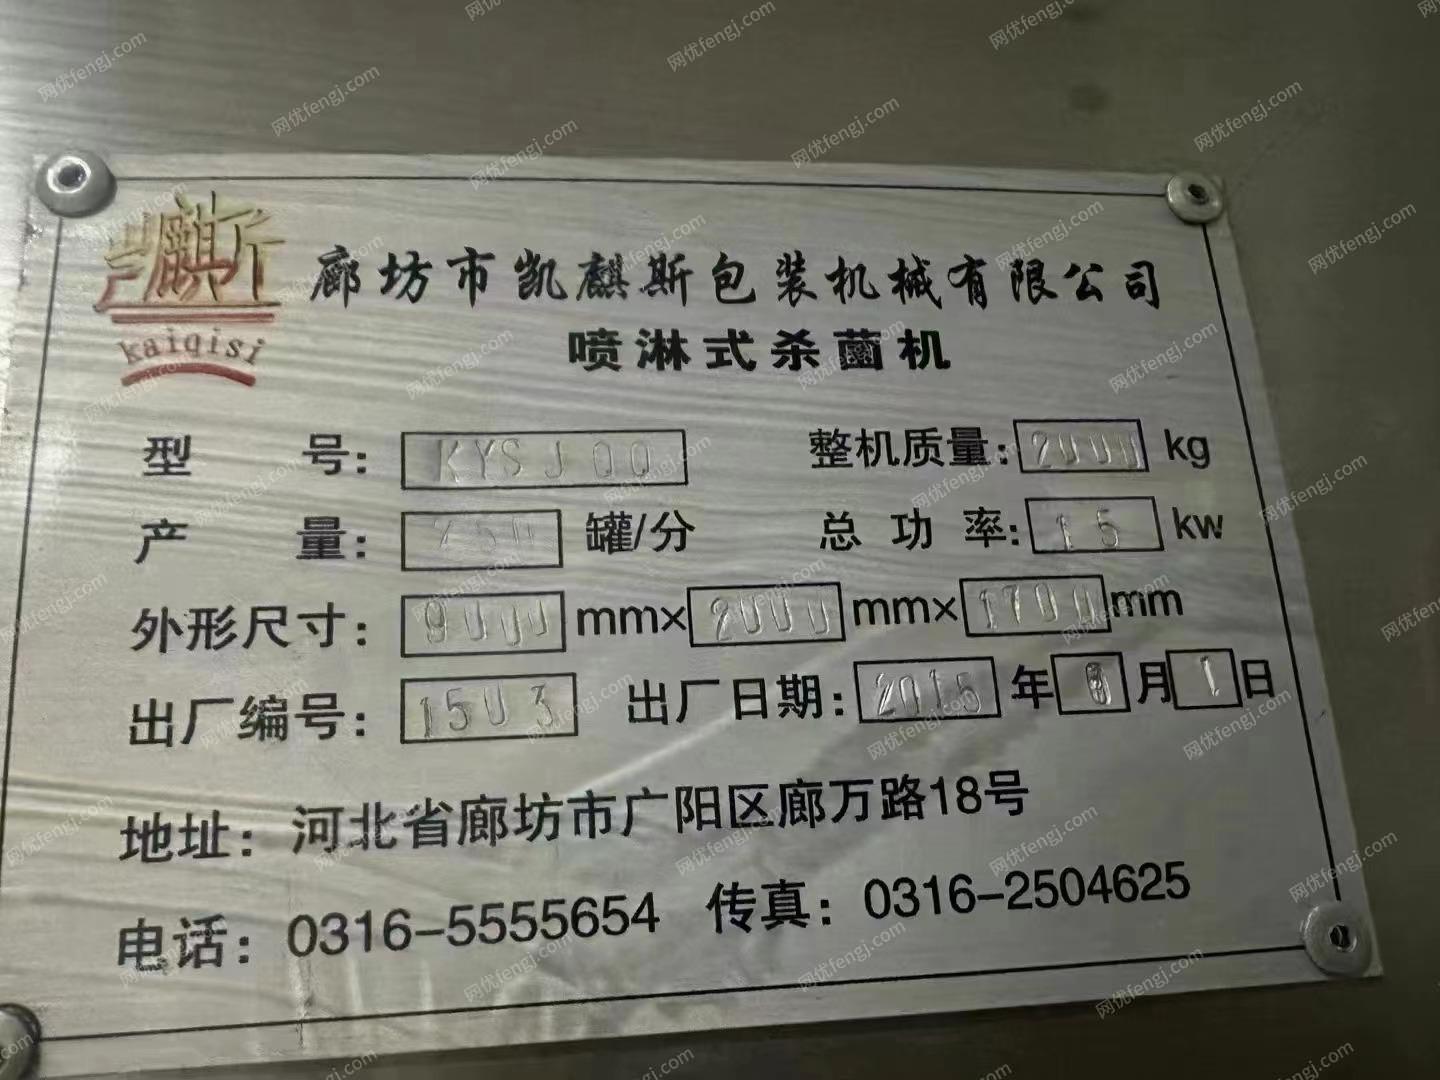 凯麒斯
kaiqisi
廊坊市凯麒斯包装机械有限公司
喷淋式杀菌机
型 号: KYSJ00 整机质量: 2000 kg
产 量: 250 罐/分 总功率: 15 kw
外形尺寸: 9000 mm×2000 mm×1700 mm
出厂编号: 1503 出厂日期: 2015 年 月 1 日
地址: 河北省廊坊市广阳区廊万路18号
电话: 0316-5555654 传真: 0316-2504625
网优fengj.com